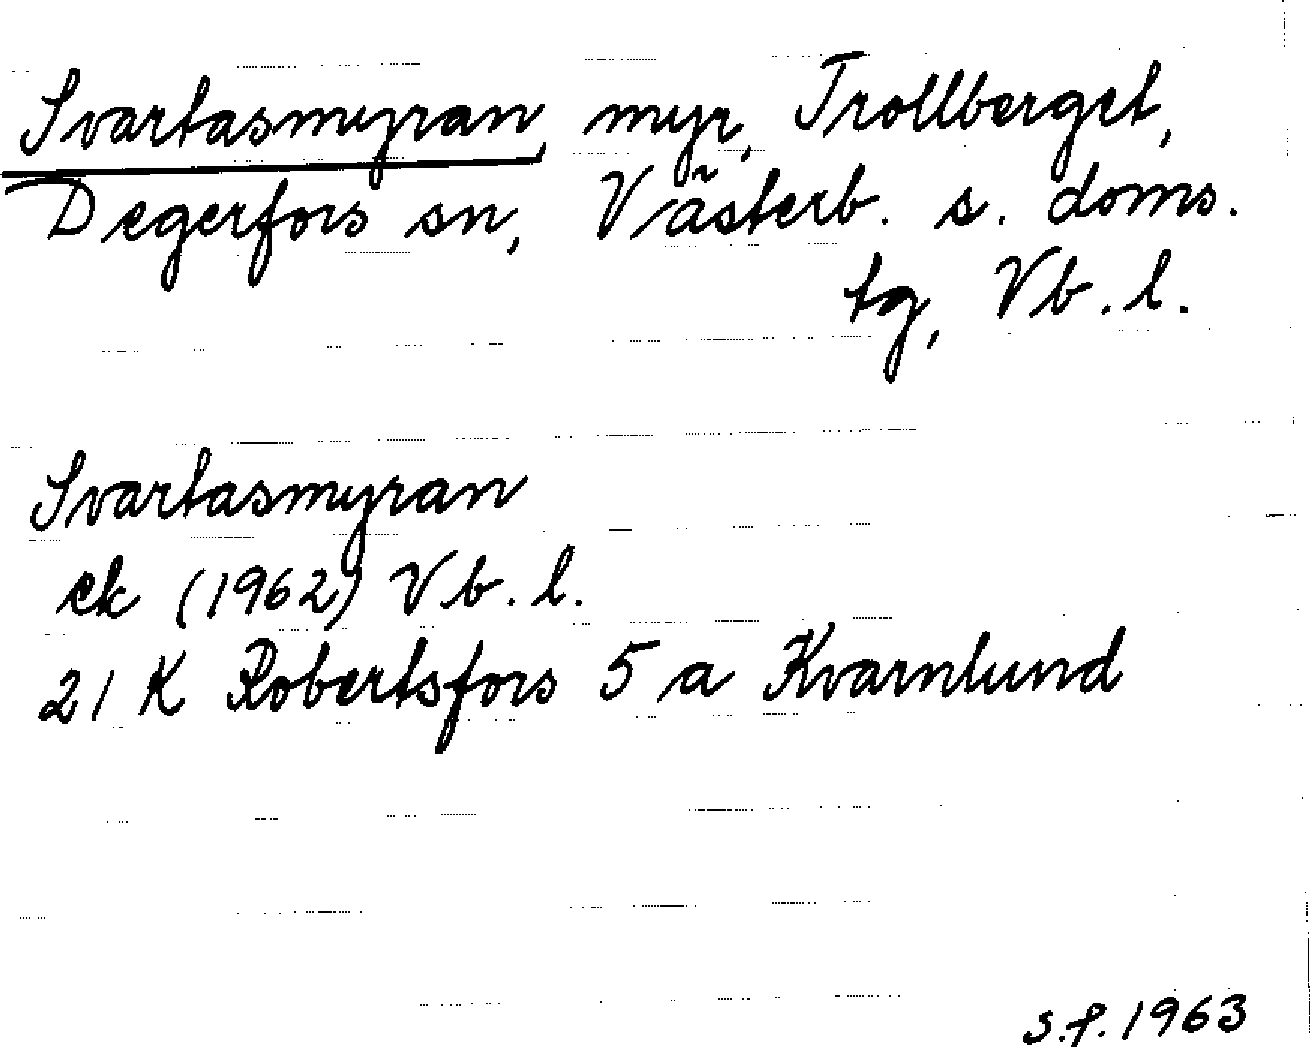 Svartasmyran, myr, Trollberget,
Degerfors sn, Västerb. s. doms.
tg, Vb. l.
Svartasmyran
ek (1962) Vb. l.
21 K Robertsfors 5 a Kvarnlund
s.f. 1963